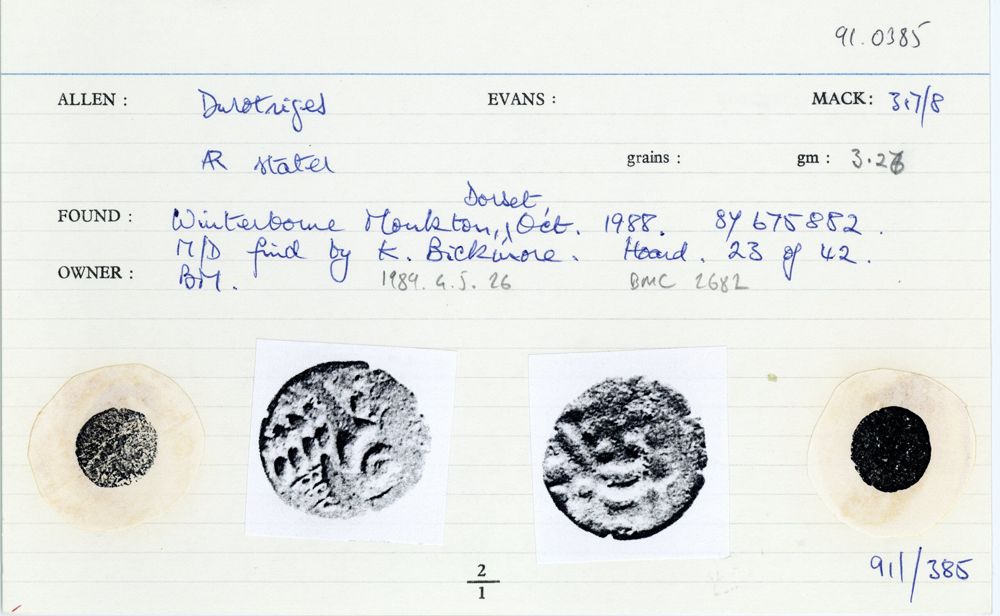 91.0385
ALLEN : Durotriges EVANS : MACK: 317/8
AR stater grains : gm : 3.26
Dorset,
FOUND : Winterborne Monkton, Oct. 1988. SY 675882.
M/D find by K. Bickmore. Hoard. 23 of 42.
OWNER : BM. 1989. 4.5. 26 BMC 2682
2
1
91/385